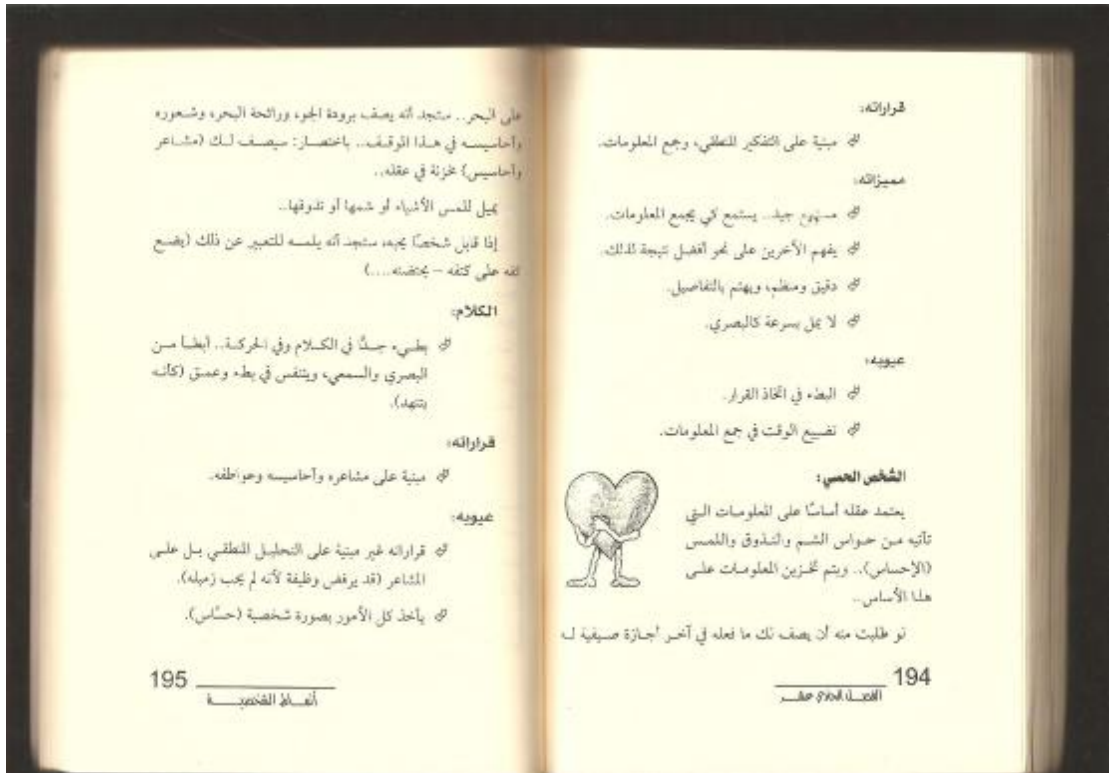 قراراته:
مبنية على التفكير المنطقي، وجمع المعلومات.
مميزاته:
جيد.. يستمع كي يجمع المعلومات.
يفهم الآخرين على نحو أفضل نتيجة لذلك.
دقيق ومنظم، ويهتم بالتفاصيل.
لا يمل بسرعة كالبصري.
عيوبه:
البطء في اتخاذ القرار.
تضييع الوقت في جمع المعلومات.
الشخص الحسي:
يعتمد عقله أساسًا على المعلومات التي
تأتيه من حواس الشم والتذوق واللمس
(الإحساس).. ويتم تخزين المعلومات على
هذا الأساس..
لو طلبت منه أن يصف لك ما فعله في آخر أجازة صيفية له
194
الفصل الحادي عشر
على البحر.. ستجد أنه يصف برودة الجو، ورائحة البحر، وشعوره
وأحاسيسه في هذا الموقف.. باختصار: سيصف لك (مشاعر
وأحاسيس) مخزنة في عقله..
يميل للمس الأشياء أو شمها أو تذوقها..
إذا قابل شخصًا يحبه، ستجد أنه يلمسه للتعبير عن ذلك (يضع
كفه على كتفه – يحتضنه....)
الكلام:
بطيء جدًّا في الكلام وفي الحركة.. أبطأ من
البصري والسمعي، ويتنفس في بطء وعمق (كأنه
يتنهد).
قراراته:
مبنية على مشاعره وأحاسيسه وعواطفه.
عيوبه:
قراراته غير مبنية على التحليل المنطقي بل على
المشاعر (قد يرفض وظيفة لأنه لم يحب زميله).
يأخذ كل الأمور بصورة شخصية (حسَّاس).
195
أنماط الشخصية